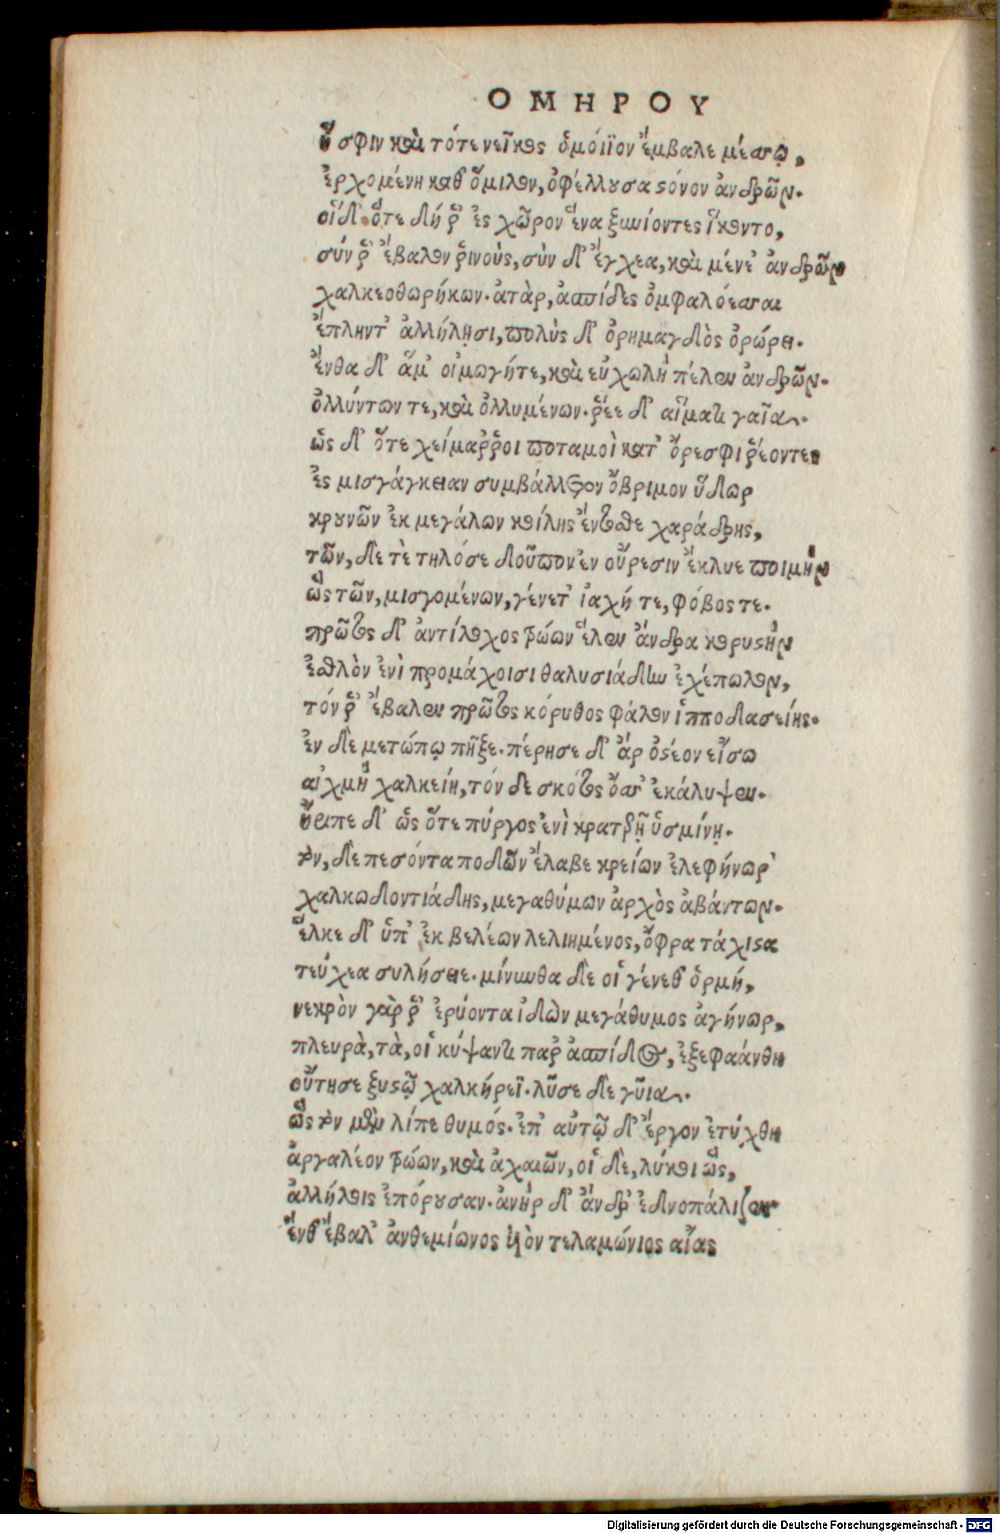 ΟΜΗΡΟΥ
ἥ σφιν καὶ τότε νεῖκος ὁμοίϊον ἔμβαλε μέσσῳ,
ἐρχομένη καθ' ὅμιλον, ὀφέλλουσα στόνον ἀνδρῶν.
οἱ δ' ὅτε δή ῥ' ἐς χῶρον ἕνα ξυνιόντες ἵκοντο,
σύν ῥ' ἔβαλον ῥινοὺς, σὺν δ' ἔγχεα, καὶ μένε' ἀνδρῶν
χαλκεοθωρήκων. ἀτὰρ, ἀσπίδες ὀμφαλόεσσαι
ἔπληντ' ἀλλήλῃσι, πολὺς δ' ὀρημαγδὸς ὀρώρει.
ἔνθα δ' ἅμ' οἰμωγή τε, καὶ εὐχωλὴ πέλεν ἀνδρῶν.
ὀλλύντων τε, καὶ ὀλλυμένων. ῥέε δ' αἵματι γαῖα.
ὡς δ' ὅτε χείμαῤῥοι ποταμοὶ κατ' ὄρεσφι ῥέοντες
ἐς μισγάγκειαν συμβάλλετον ὄβριμον ὕδωρ
κρουνῶν ἐκ μεγάλων κοίλης ἔντοσθε χαράδρης,
τῶν, δέ τὲ τηλόσε δοῦπον ἐν οὔρεσιν ἔκλυε ποιμὴν
ὣς τῶν, μισγομένων, γένετ' ἰαχή τε, φόβος τε.
πρῶτος δ' ἀντίλοχος τρώων ἕλεν ἄνδρα κορυστὴν
ἐσθλὸν ἐνὶ προμάχοισι θαλυσιάδην ἐχέπωλον,
τόν ῥ' ἔβαλεν πρῶτος κόρυθος φάλον ἱπποδασείης.
ἐν δὲ μετώπῳ πῆξε. πέρησε δ' ἄρ ὀστέον εἴσω
αἰχμὴ χαλκείη, τόν δε σκότος ὄσσ' ἐκάλυψεν.
ἤειπε δ' ὡς ὅτε πύργος ἐνὶ κρατερῇ ὑσμίνῃ.
τὸν, δὲ πεσόντα ποδῶν ἔλαβε κρείων ἐλεφήνωρ
χαλκωδοντιάδης, μεγαθύμων ἀρχὸς ἀβάντων.
ἕλκε δ' ὑπ' ἐκ βελέων λελιημένος, ὄφρα τάχιστα
τεύχεα συλήσειε. μίνυνθα δέ οἱ γένεθ' ὁρμή,
νεκρὸν γὰρ ῥ' ἐρύοντα ἰδὼν μεγάθυμος ἀγήνωρ,
πλευρὰ, τὰ, οἱ κύψαντι παρ' ἀσπίδος, ἐξεφαάνθη
οὔτησε ξυστῷ χαλκήρεϊ. λῦσε δὲ γῦια.
ὣς τὸν μὲν λίπε θυμός. ἐπ' αὐτῷ δ' ἔργον ἐτύχθη
ἀργαλέον τρώων, καὶ ἀχαιῶν, οἱ δὲ, λύκοι ὣς,
ἀλλήλοις ἐπόρουσαν. ἀνὴρ δ' ἄνδρ' ἐδνοπάλιζεν
ἔνθ' ἔβαλ' ἀνθεμίωνος ὑὸν τελαμώνιος αἴας
Digitalisierung gefördert durch die Deutsche Forschungsgemeinschaft - DFG